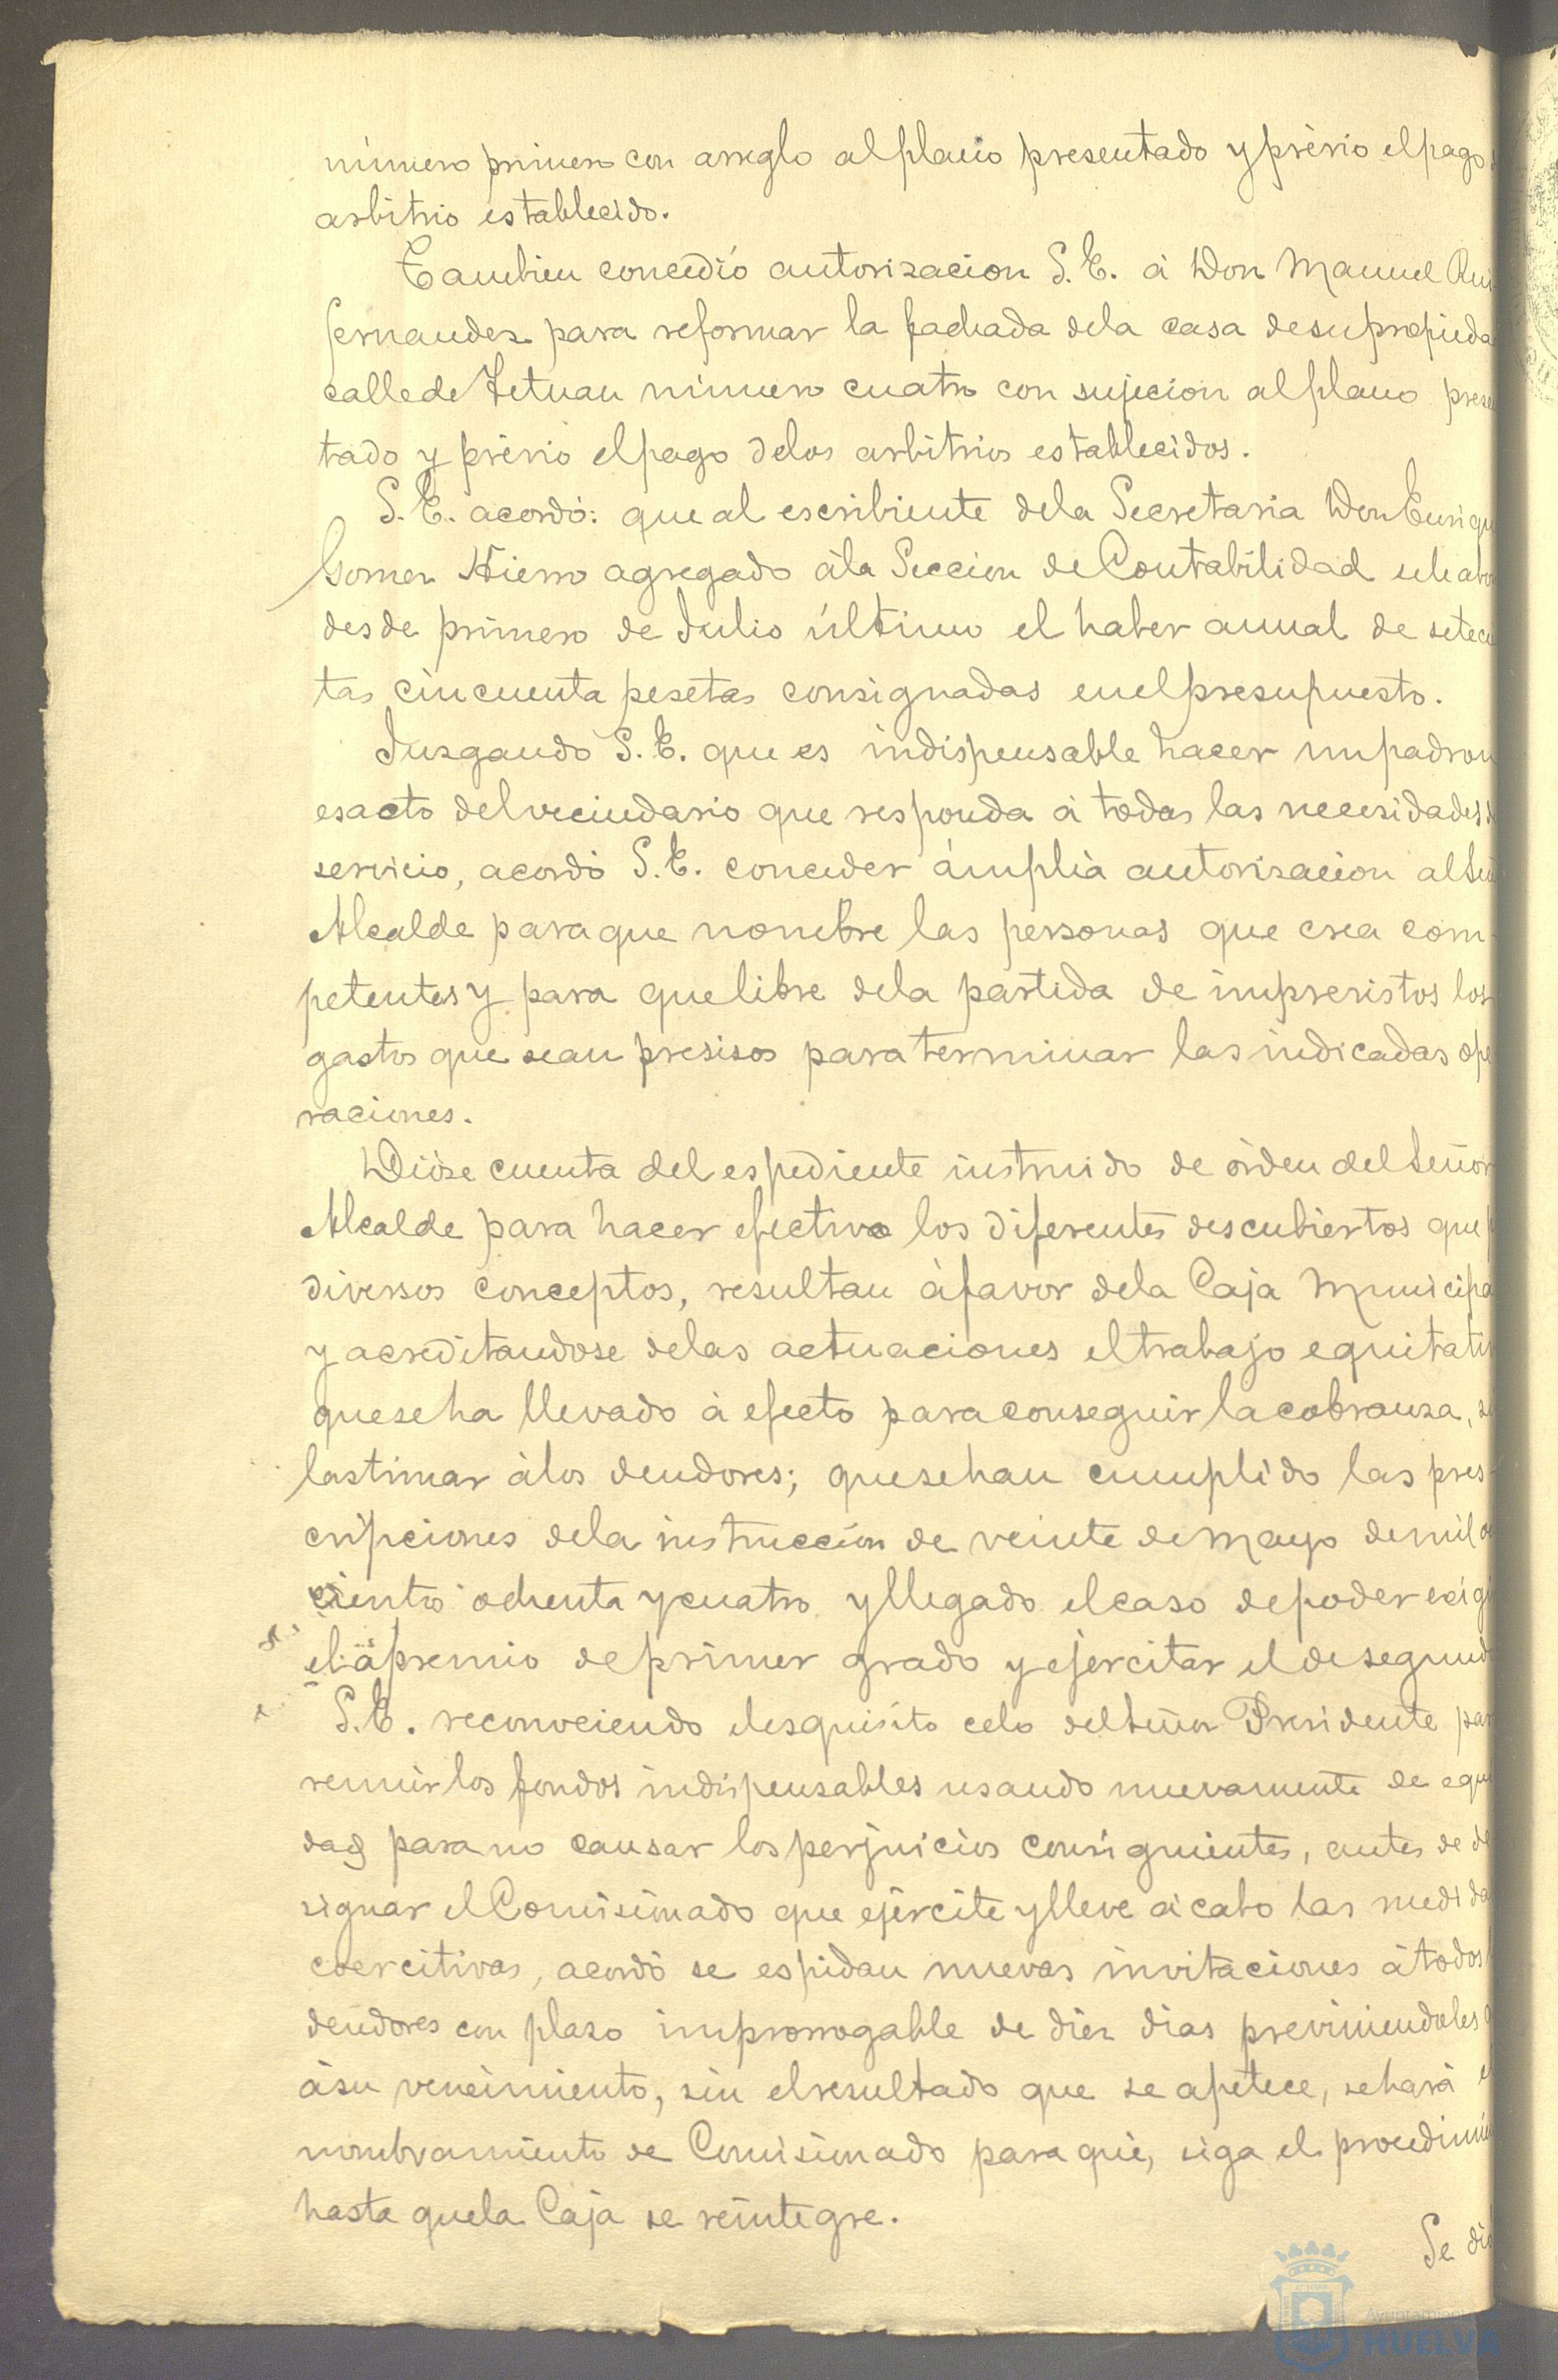 número primero con arreglo al plano presentado y prévio el pago
arbitrio establecido.
Tambien concedió autorizacion S. E. á Don Manuel Rui
fernandez para reformar la fachada dela casa desupropieda
callede Tetuan número cuatro con sujecion al plano prese
tado y prévio elpago delos arbitrios establecidos.
S. E. acordó: que al escribiente dela Secretaria Don Enriqu
Gomez Hierro agregado ála Seccion de Contabilidad sele abo
desde primero de Julio último el haber anual de setecie
tas cincuenta pesetas consignadas enelpresupuesto.
Juzgando S. E. que es indispensable hacer unpadron
esacto delvecindario que responda á todas las necesidades
servicio, acordó S. E. conceder ámplia autorizacion al Señ
Alcalde paraque nombre las personas que crea com-
petentes y para quelibre dela partida de imprevistos los
gastos que sean presisos paraterminar las indicadas ope
raciones.
Dióse cuenta del espediente instruido de órden del Señor
Alcalde para hacer efectivo los diferentes descubiertos que p
diversos conceptos, resultan áfavor dela Caja Municipa
y acreditandose delas actuaciones eltrabajo equitativ
queseha llevado á efecto paraconseguir lacobranza, s
lastimar álos deudores; quesehan cumplido las pres-
cripciones dela instruccion de veinte demayo demil o
ciento ochenta ycuatro yllegado elcaso depoder exigi
el apremio deprimer grado y ejercitar el desegund
S. E. reconociendo elesquisito celo delSeñor Presidente par
reunir los fondos indispensables usando nuevamente de equi
dad para no causar los perjuicios consiguientes, antes de de
signar elComisionado que ejército ylleve á cabo las medida
coercitivas, acordó se espidan nuevas invitaciones átodos
deudores con plazo improrrogable de diez dias previniendoles
ásu vencimiento, sin elresultado que se apetece, sehará e
nombramiento de Comisionado paraque, siga el procedimie
hasta quela Caja se reintegre.
Se dió
Ayuntamien
HUELVA